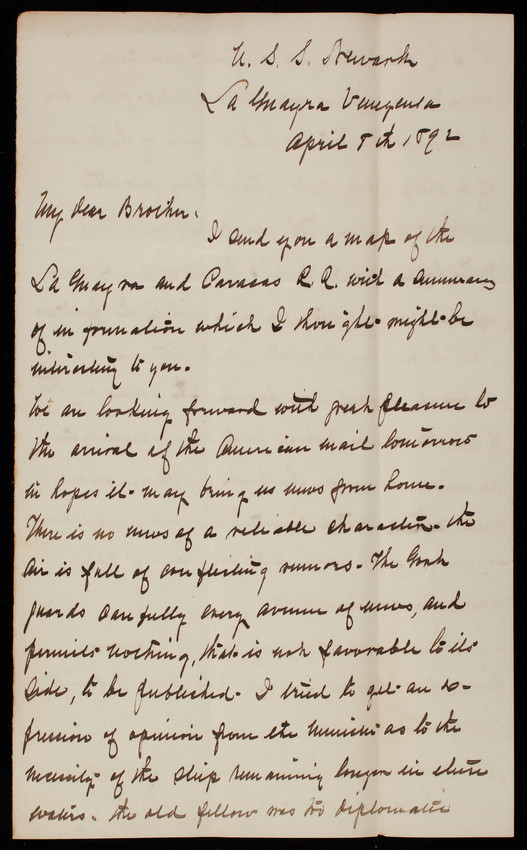 U. S. S. Newark
La Guayra Venezuela
April 8th 1892
My dear Brother.
I send you a map of the
La Guayra and Caracas R.R. with a summary
of information which I thought might be
interesting to you.
We are looking forward with great pleasure to
the arrival of the American mail tomorrow
in hopes it may bring us news from home.
There is no news of a reliable character. the
air is full of conflicting rumors. The Govt
guards carefully every avenue of news, and
permits nothing, that is not favorable to its
side, to be published. I tried to get an ex-
pression of opinion from the Minister as to the
necessity of the ship remaining longer in these
waters. the old fellow was too diplomatic